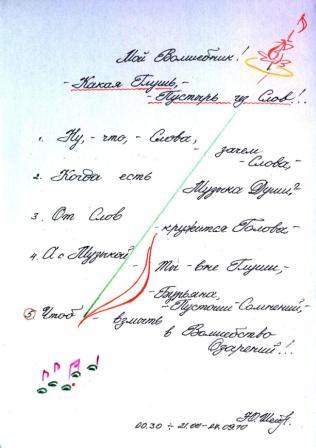 Мой Волшебник!
- Какая Глушь, -
- Пустырь из Слов!..
1. Ну, - что, - Слова, -
- зачем
- Слова, -
2. Когда есть
Музыка Души,?
3. От Слов
- кружится Голова -
4. А с Музыкой
- Ты - вне Глуши, -
- Бурьяна, -
- Пустоши - Сомнений, -
5 Чтоб - взмыть
в Волшебство
Озарений!..
00.30 ÷ 21.00